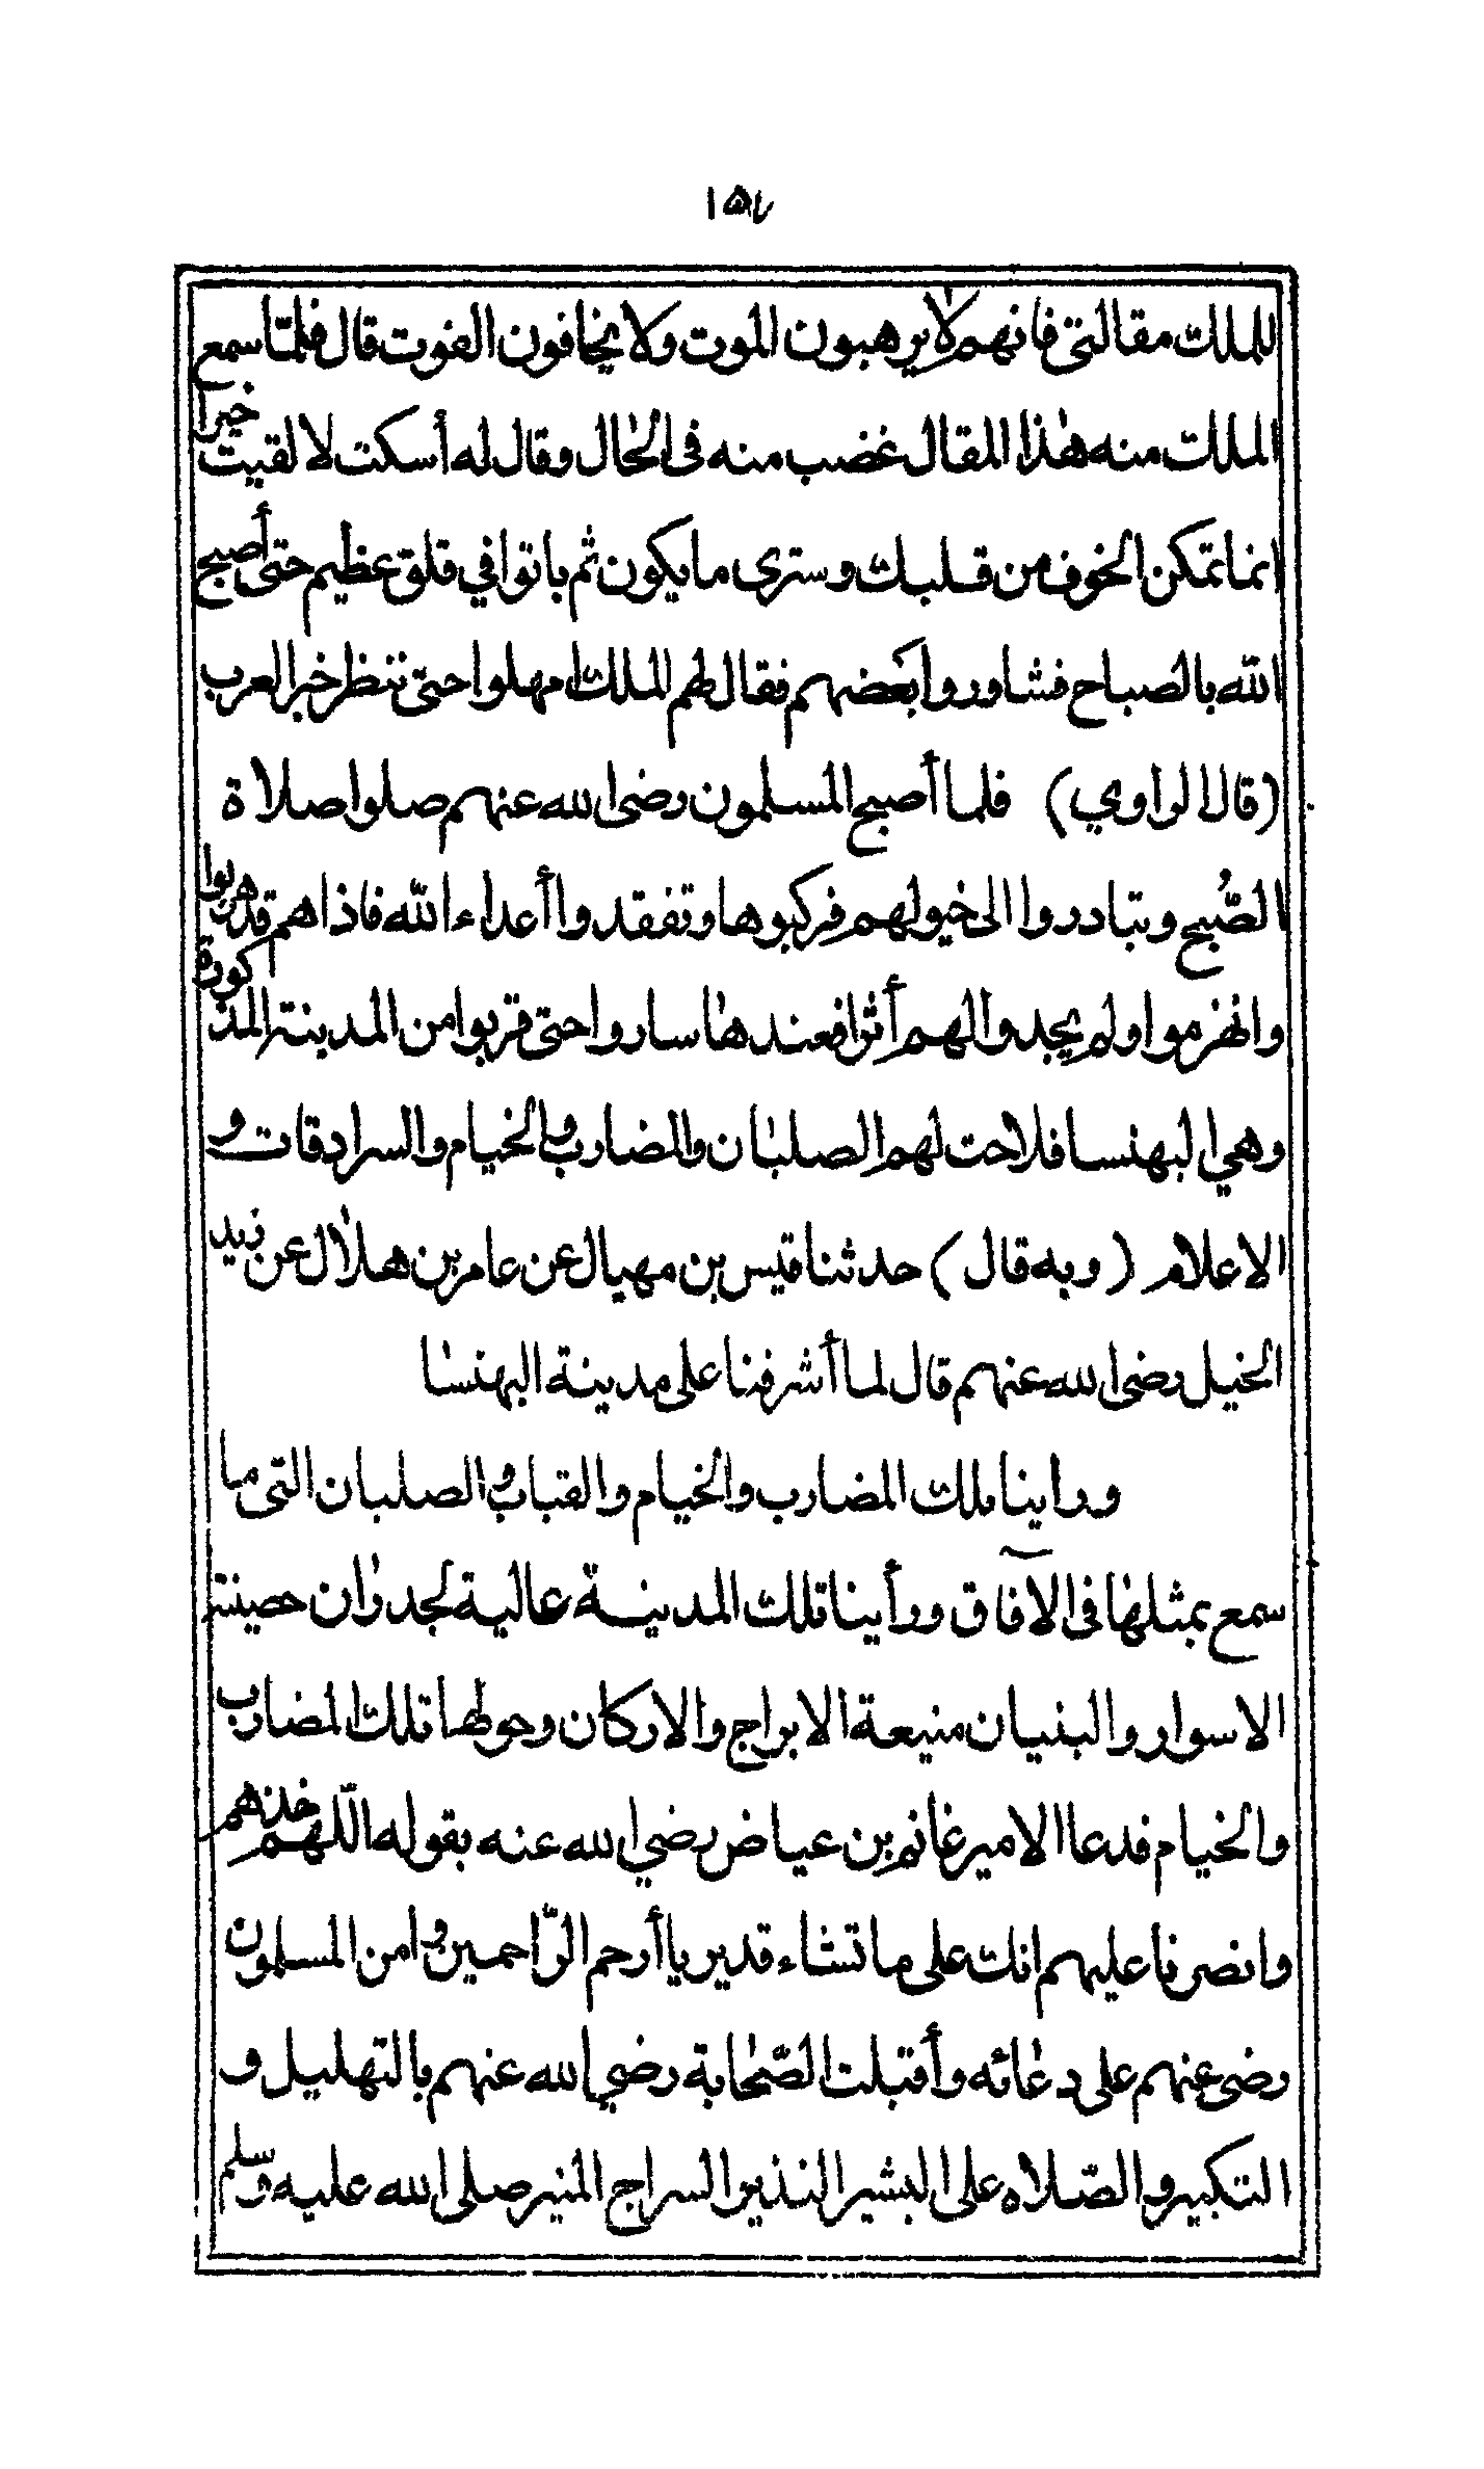 ١٥٧
للملك مقالتي فانهم لا يرهبون الموت ولا يخافون الفوت قال فلمّا سمع
الملك منه هٰذا المقال غضب منه فى الحٰال وقال له أسكت لا لقيت خيرا
انما تمكن الخوف من قلبك وسترى ما يكون ثم باتوا في قلق عظيم حتى أصبح
الله بالصباح فشاوروا بعضهم فقال لهم الملك امهلوا حتى ننظر خبر العرب
(قال الراوي) فلما أصبح المسلمون رضى الله عنهم صلوا صلاة
الصُّبح وتبادروا الى خيولهم فركبوها وتفقدوا أعداء الله فاذا هم قد هربوا
وانهزموا ولم يجدوا لهم أثرا فعندها ساروا حتى قربوا من المدينة المذكورة
وهي البهنسا فلاحت لهم الصلبٰان والمضارب والخيام والسرادقات و
الاعلام (وبه قال) حدثنا قيس بن مهيال عن عامر بن هلاٰل عن زيد
الخيل رضى الله عنهم قال لما أشرفنا على مدينة البهنسٰا
ورأينا تلك المضارب والخيام والقباب والصلبان التى ما
سمع بمثلهٰا فى الآفاق ورأينا تلك المدينة عالية لجدرٰان حصينة
الاسوار والبنيان منيعة الابراج والاركان وحولها تلك المضارب
والخيام فدعا الامير غانم بن عياض رضي الله عنه بقوله اللّهم خذهم
وانصرنا عليهم انك على ما تشاء قدير يا أرحم الرّاحمين وامن المسلمون
رضى عنهم على دعٰائه وأقبلت الصّحٰابة رضي الله عنهم بالتهليل و
التكبير والصّلاه على البشير النذير السراج المنير صلى الله عليه وسلم